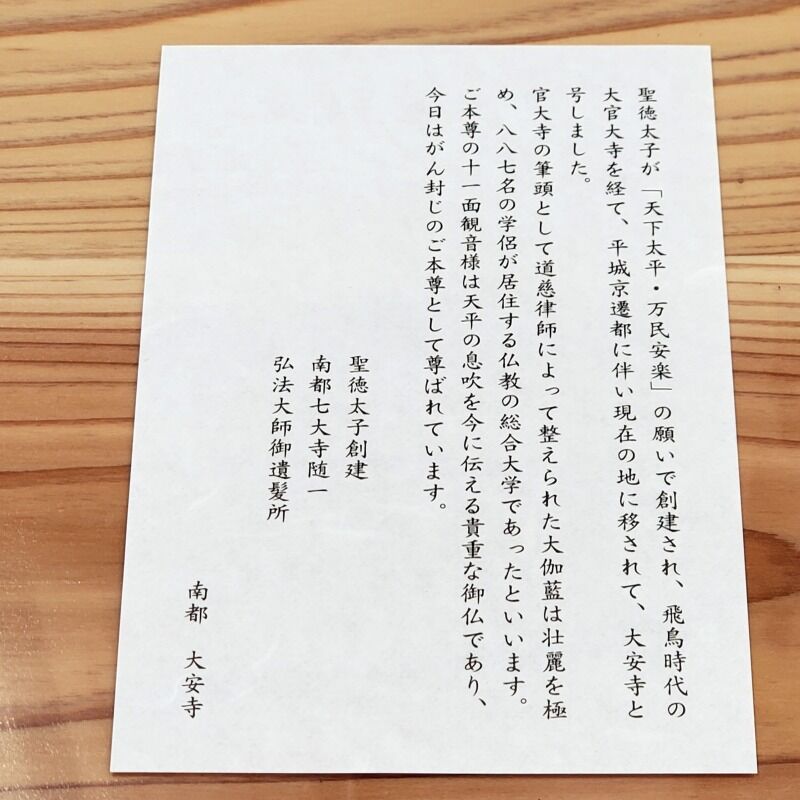 聖徳太子が「天下太平・万民安楽」の願いで創建され、飛鳥時代の
大官大寺を経て、平城京遷都に伴い現在の地に移されて、大安寺と
号しました。
官大寺の筆頭として道慈律師によって整えられた大伽藍は壮麗を極
め、八八七名の学侶が居住する仏教の総合大学であったといいます。
ご本尊の十一面観音様は天平の息吹を今に伝える貴重な御仏であり、
今日はがん封じのご本尊として尊ばれています。
聖徳太子創建
南都七大寺随一
弘法大師御遺髪所
南都　大安寺